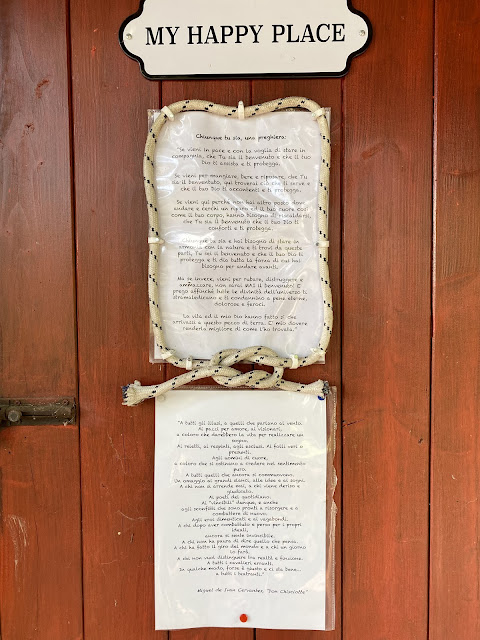 MY HAPPY PLACE
Chiunque tu sia, una preghiera:
"Se vieni in pace e con la voglia di stare in
compagnia, che Tu sia il benvenuto e che il tuo
Dio ti assista e ti protegga.
Se vieni per mangiare, bere e riposare, che Tu
sia il benvenuto, qui troverai ciò che ti serve e
che il tuo Dio ti accontenti e ti protegga.
Se vieni qui perché non hai altro posto dove
andare e cerchi un riparo ed il tuo cuore così
come il tuo corpo, hanno bisogno di riscaldarsi,
che Tu sia il benvenuto e che il tuo Dio ti
conforti e ti protegga.
Chiunque tu sia e hai bisogno di stare in
sintonia con la natura e ti trovi da queste
parti, Tu sei il benvenuto e che il tuo Dio ti
protegga e ti dia tutta la forza di cui hai
bisogno per andare avanti.
Ma se invece, vieni per rubare, distruggere e
ammazzare, non sarai MAI il benvenuto! E
prego affinché tutte le divinità dell'universo ti
stramaledicano e ti condannino a pene eterne,
dolorose e feroci.
La vita ed il mio Dio hanno fatto sì che
arrivassi a questo pezzo di terra. E' mio dovere
renderlo migliore di come l'ho trovato."
"A tutti gli illusi, a quelli che parlano al vento.
Ai pazzi per amore, ai visionari,
a coloro che darebbero la vita per realizzare un
sogno.
Ai reietti, ai respinti, agli esclusi. Ai folli veri o
presunti.
Agli uomini di cuore,
a coloro che si ostinano a credere nel sentimento
puro.
A tutti quelli che ancora si commuovono.
Un omaggio ai grandi slanci, alle idee e ai sogni.
A chi non si arrende mai, a chi viene deriso e
giudicato.
Ai poeti del quotidiano.
Ai "vincibili" dunque, e anche
agli sconfitti che sono pronti a risorgere e a
combattere di nuovo.
Agli eroi dimenticati e ai vagabondi.
A chi dopo aver combattuto e perso per i propri
ideali,
ancora si sente invincibile.
A chi non ha paura di dire quello che pensa.
A chi ha fatto il giro del mondo e a chi un giorno
lo farà.
A chi non vuol distinguere tra realtà e finzione.
A tutti i cavalieri erranti.
In qualche modo, forse è giusto e ci sta bene...
a tutti i teatranti."
Miguel de Cervantes "Don Chisciotte"